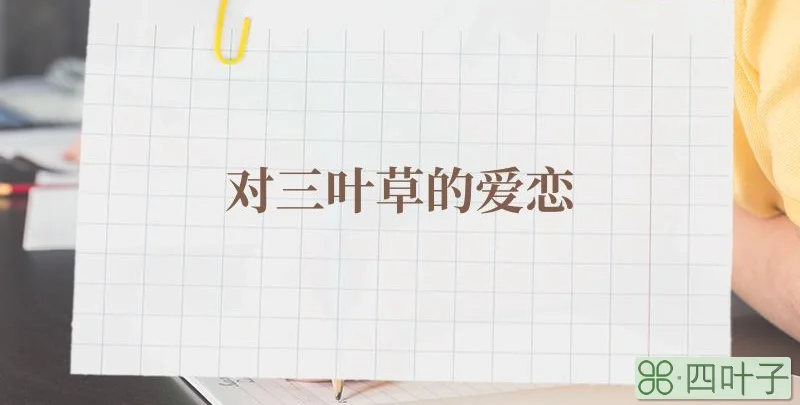 对三叶草的爱恋
四叶子